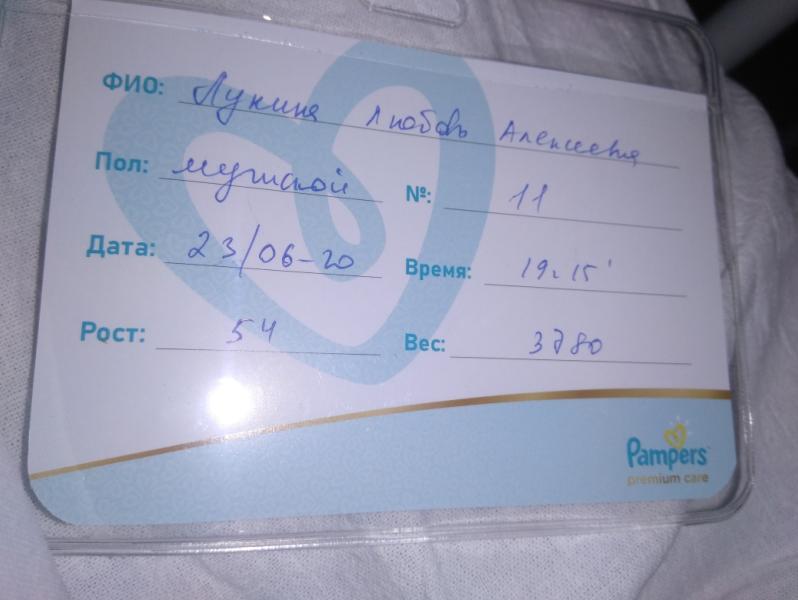 ФИО: Лукина Любовь Алексеевна
Пол: мужской №: 11
Дата: 23/06-20 Время: 19.15'
Рост: 54 Вес: 3780
Pampers
premium care